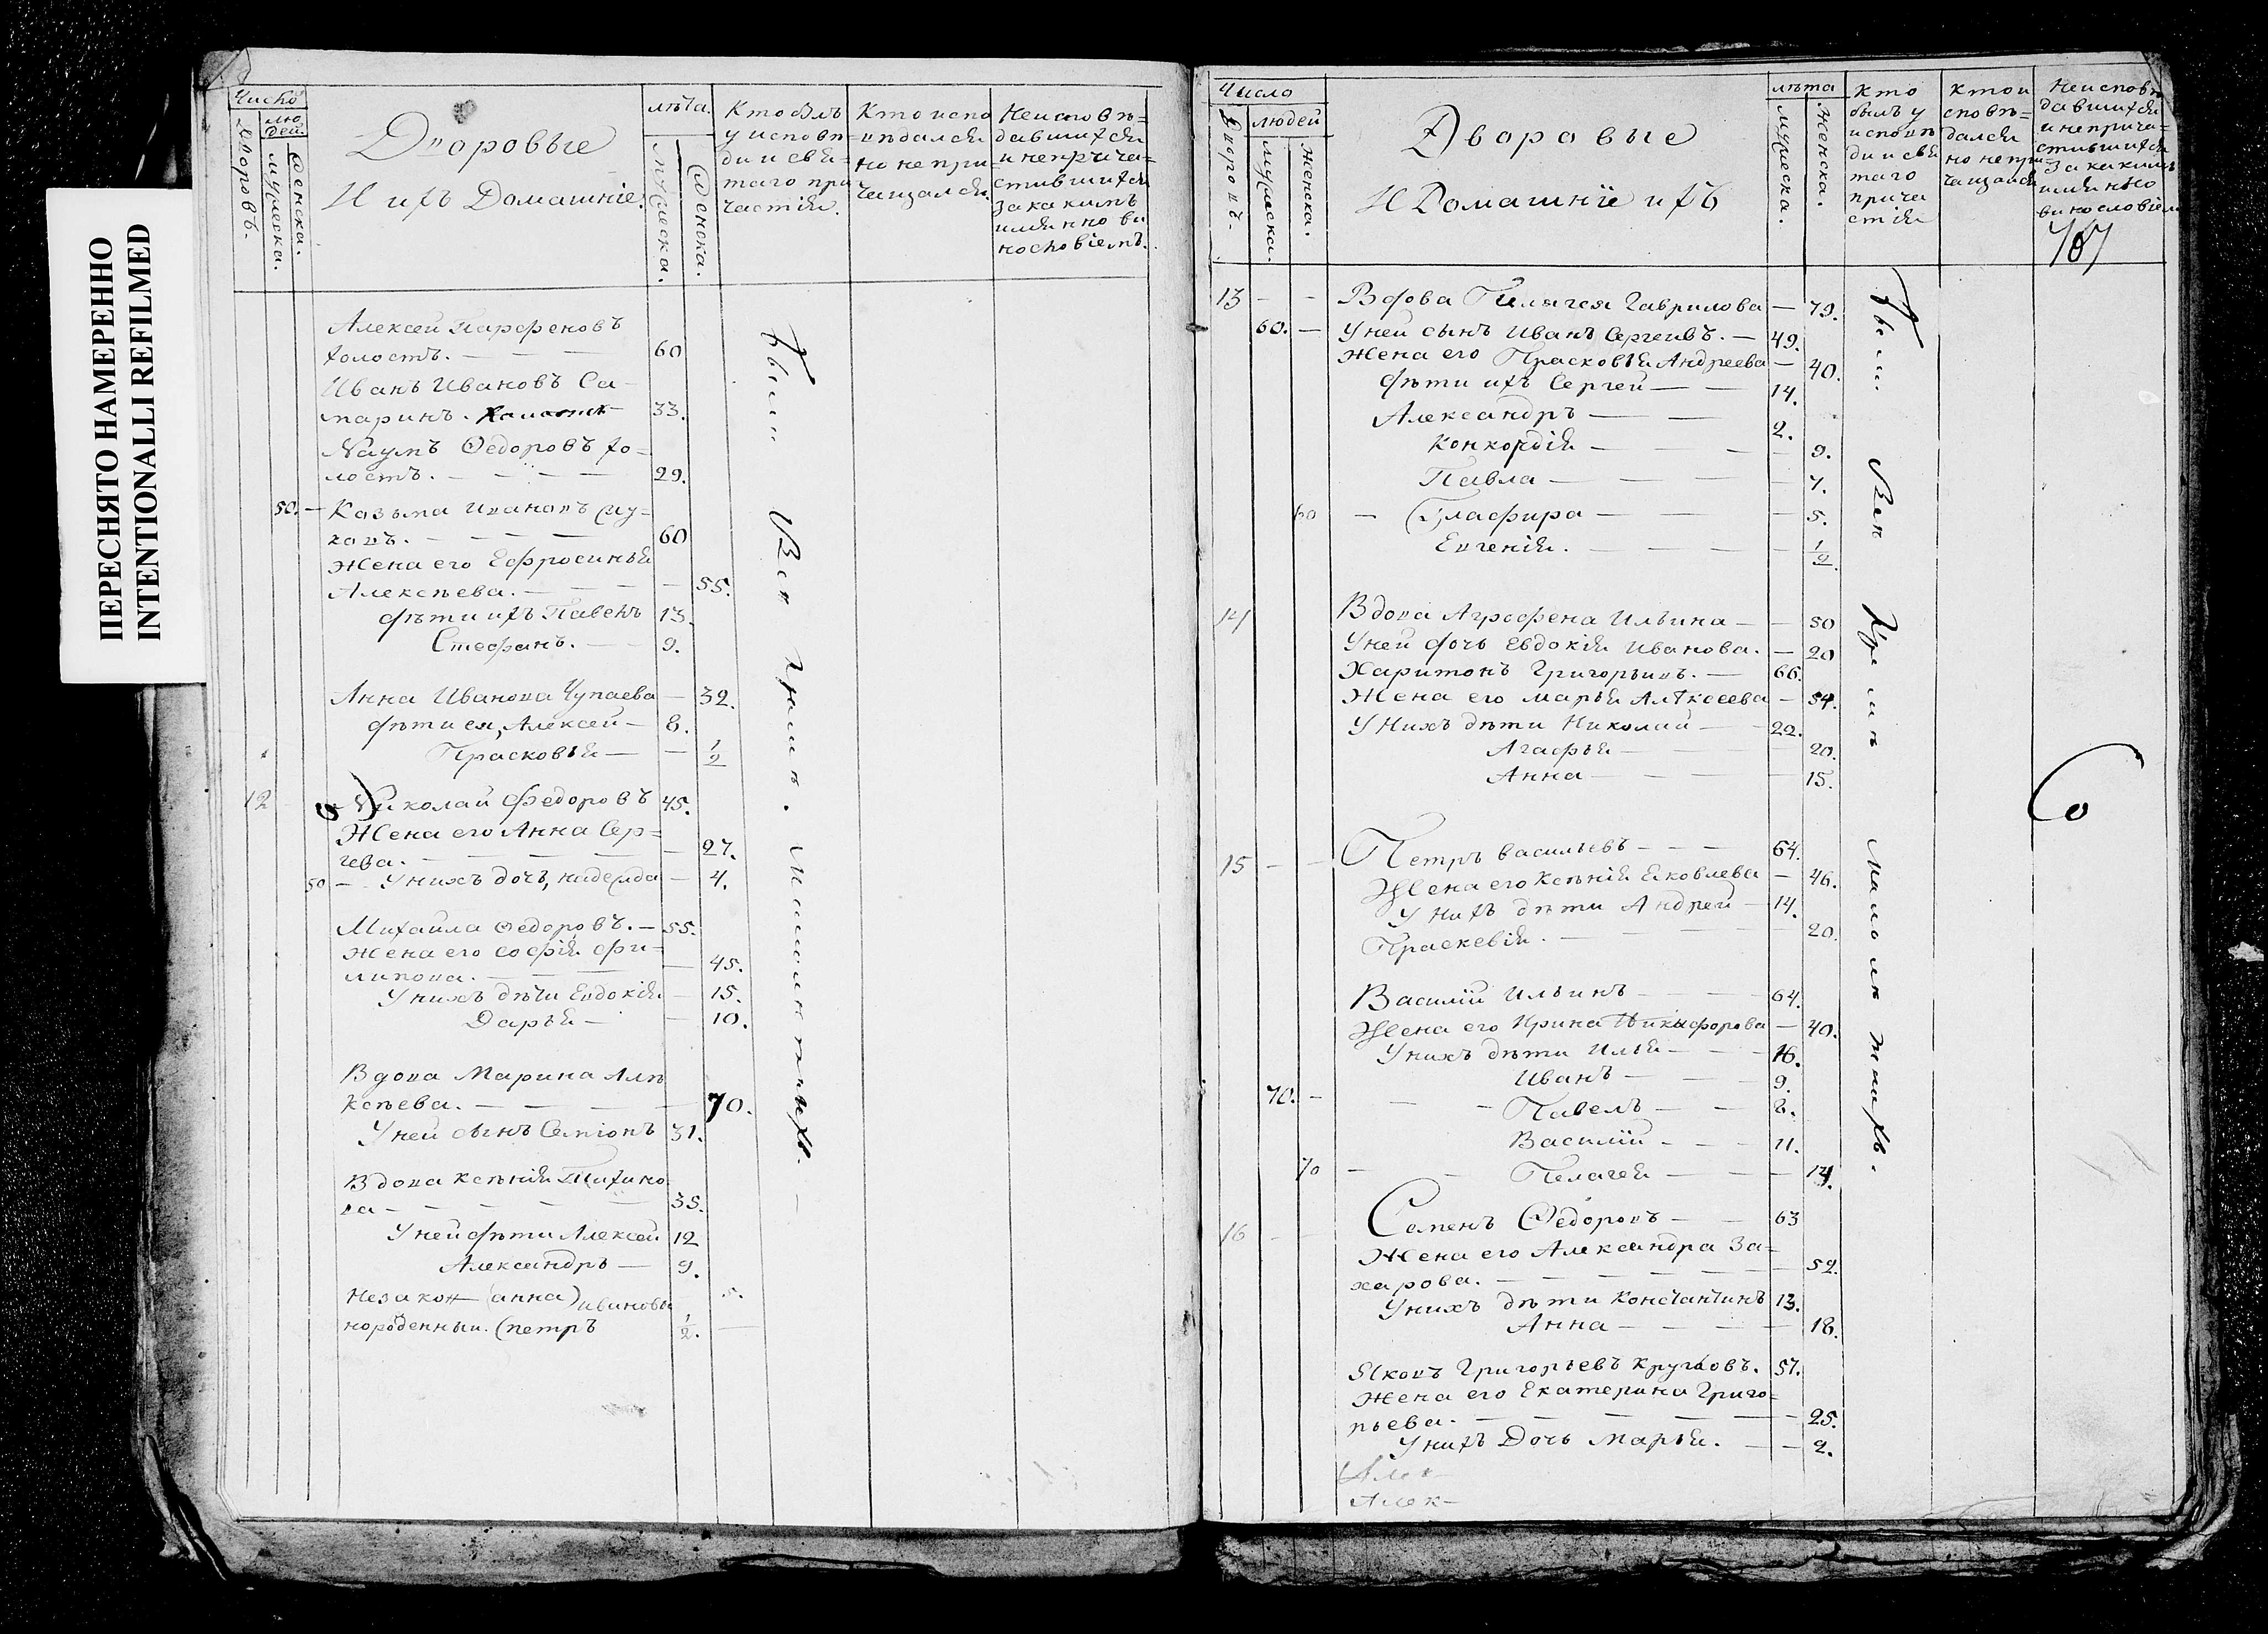 ПЕРЕСНЯТО НАМЕРЕННО
INTENTIONALLI REFILMED
Число
Дворовъ.
лю
дей.
мужеска.
женска.
Дворовые
И ихъ Домашніе.
лѣта.
мужеска.
женска.
Кто былъ
у исповѣ-
ди и свя-
таго при
частія.
Кто испо
вѣдался
но не при-
чащался.
Неисповѣ-
давшихся
и неприча-
стившихся
за какимъ
имянно ви
нословіемъ.
Алексей Парфеновъ
холостъ. — — — 60
Иванъ Ивановъ Са-
маринъ. холостъ 33.
Наумъ Ѳедоровъ хо-
лостъ. — — — 29.
50. — Козьма Ивановъ
60
Жена его Ефросинья
Алексѣева. — — — 55.
дѣти ихъ Павелъ 13.
Стефанъ. — 9.
Анна Иванова Чупаева — 32.
дѣти ея, Алексей — 8.
Прасковья — — 1/2
12 Николай Федоровъ 45.
Жена его Анна Сер-
гева. — — — 27.
50 — У нихъ дочь, надежда — 4.
Михайла Ѳедоровъ. — 55.
Жена его Софія Фи-
липова. — — — 45.
У нихъ дѣти Евдокія — 15.
Дарья — — 10.
Вдова Марина Але
ксѣева. — — — 70.
У ней сынъ Семіонъ 31.
Вдова Ксѣнія Тихано
ва — — — 35.
У ней дѣти Алексей 12
Александръ — 9.
Незакон (анна) ивановы 5.
норожденныи. (петръ 1/2. —
были Вси
Число
Дворовъ.
людей
мужеска.
женска.
Дворовые
И Домашніе ихъ
лѣта
мужеска.
женска.
Кто
былъ у
исповѣ
ди и свя
таго
прича
стія
Кто и
сповѣ-
дался
но не при-
чащался
Неисповѣ
давшихся
и неприча-
стившихся
за какимъ
имянно
винословіем
13 — — Вдова Пилагея Гаврилова — 79.
60. — У ней сынъ Иванъ Сергеивъ. — 49.
Жена его Прасковья Андреева — 40.
дѣти ихъ Сергей — — 14.
Александръ — — 2.
Конкордія — — — 9.
Павла — — — 7.
60 — Глафира — — — 5.
Евгенія. — — — 1/2
14 Вдова Аграфена Ильина — — 50
У ней дочь Евдокія Иванова. — 20
Харитонъ Григорьивъ. — 66.
Жена его Марья Алѣксеева — 54.
У Нихъ дѣти Николай — 22.
Агафья — 20.
Анна — — — 15.
15 — — Петръ Васильевъ — — — 64.
Жена его Ксѣнія Яковлева — 46.
У нихъ дѣти Андрей — 14.
Праскевія. — — — 20.
Василіи Ильинъ — — — 64.
Жена его Ирина Никифорова — 40.
У нихъ дѣти Илья — — 16.
Иванъ — — 9.
70. — — — Павелъ — — 8.
Василіи — — 11.
70 — — Пелагея — — 14.
16 — — Семенъ Ѳедоровъ — — 63
Жена его Александра За-
харова. — — — — 52.
У нихъ дѣти Константинъ 13.
Анна — — — — 18.
Яковъ Григорьевъ Кругловъ. 57.
Жена его Екатерина Григо-
рьева. — — — — 25.
У нихъ Дочь Марья. — — 2.
Алек-
Алек-
были. Вси Кромѣ малолѣтнихъ.